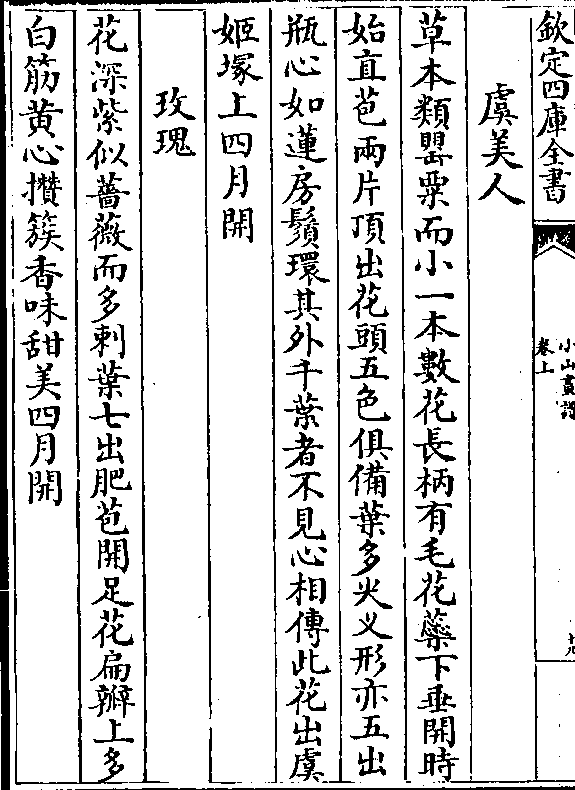 欽定四庫全書
小山畫譜
卷上
十九
虞美人
草本類罌粟而小一本數花長柄有毛花蘂下垂開時
始直苞兩片頂出花頭五色俱備葉多火义形亦五出
瓶心如蓮房鬚環其外千葉者不見心相傳此花出虞
姬塚上四月開
玫瑰
花深紫似薔薇而多刺葉七出肥苞開足花扁辦上多
白筋黄心攢簇香味甜美四月開